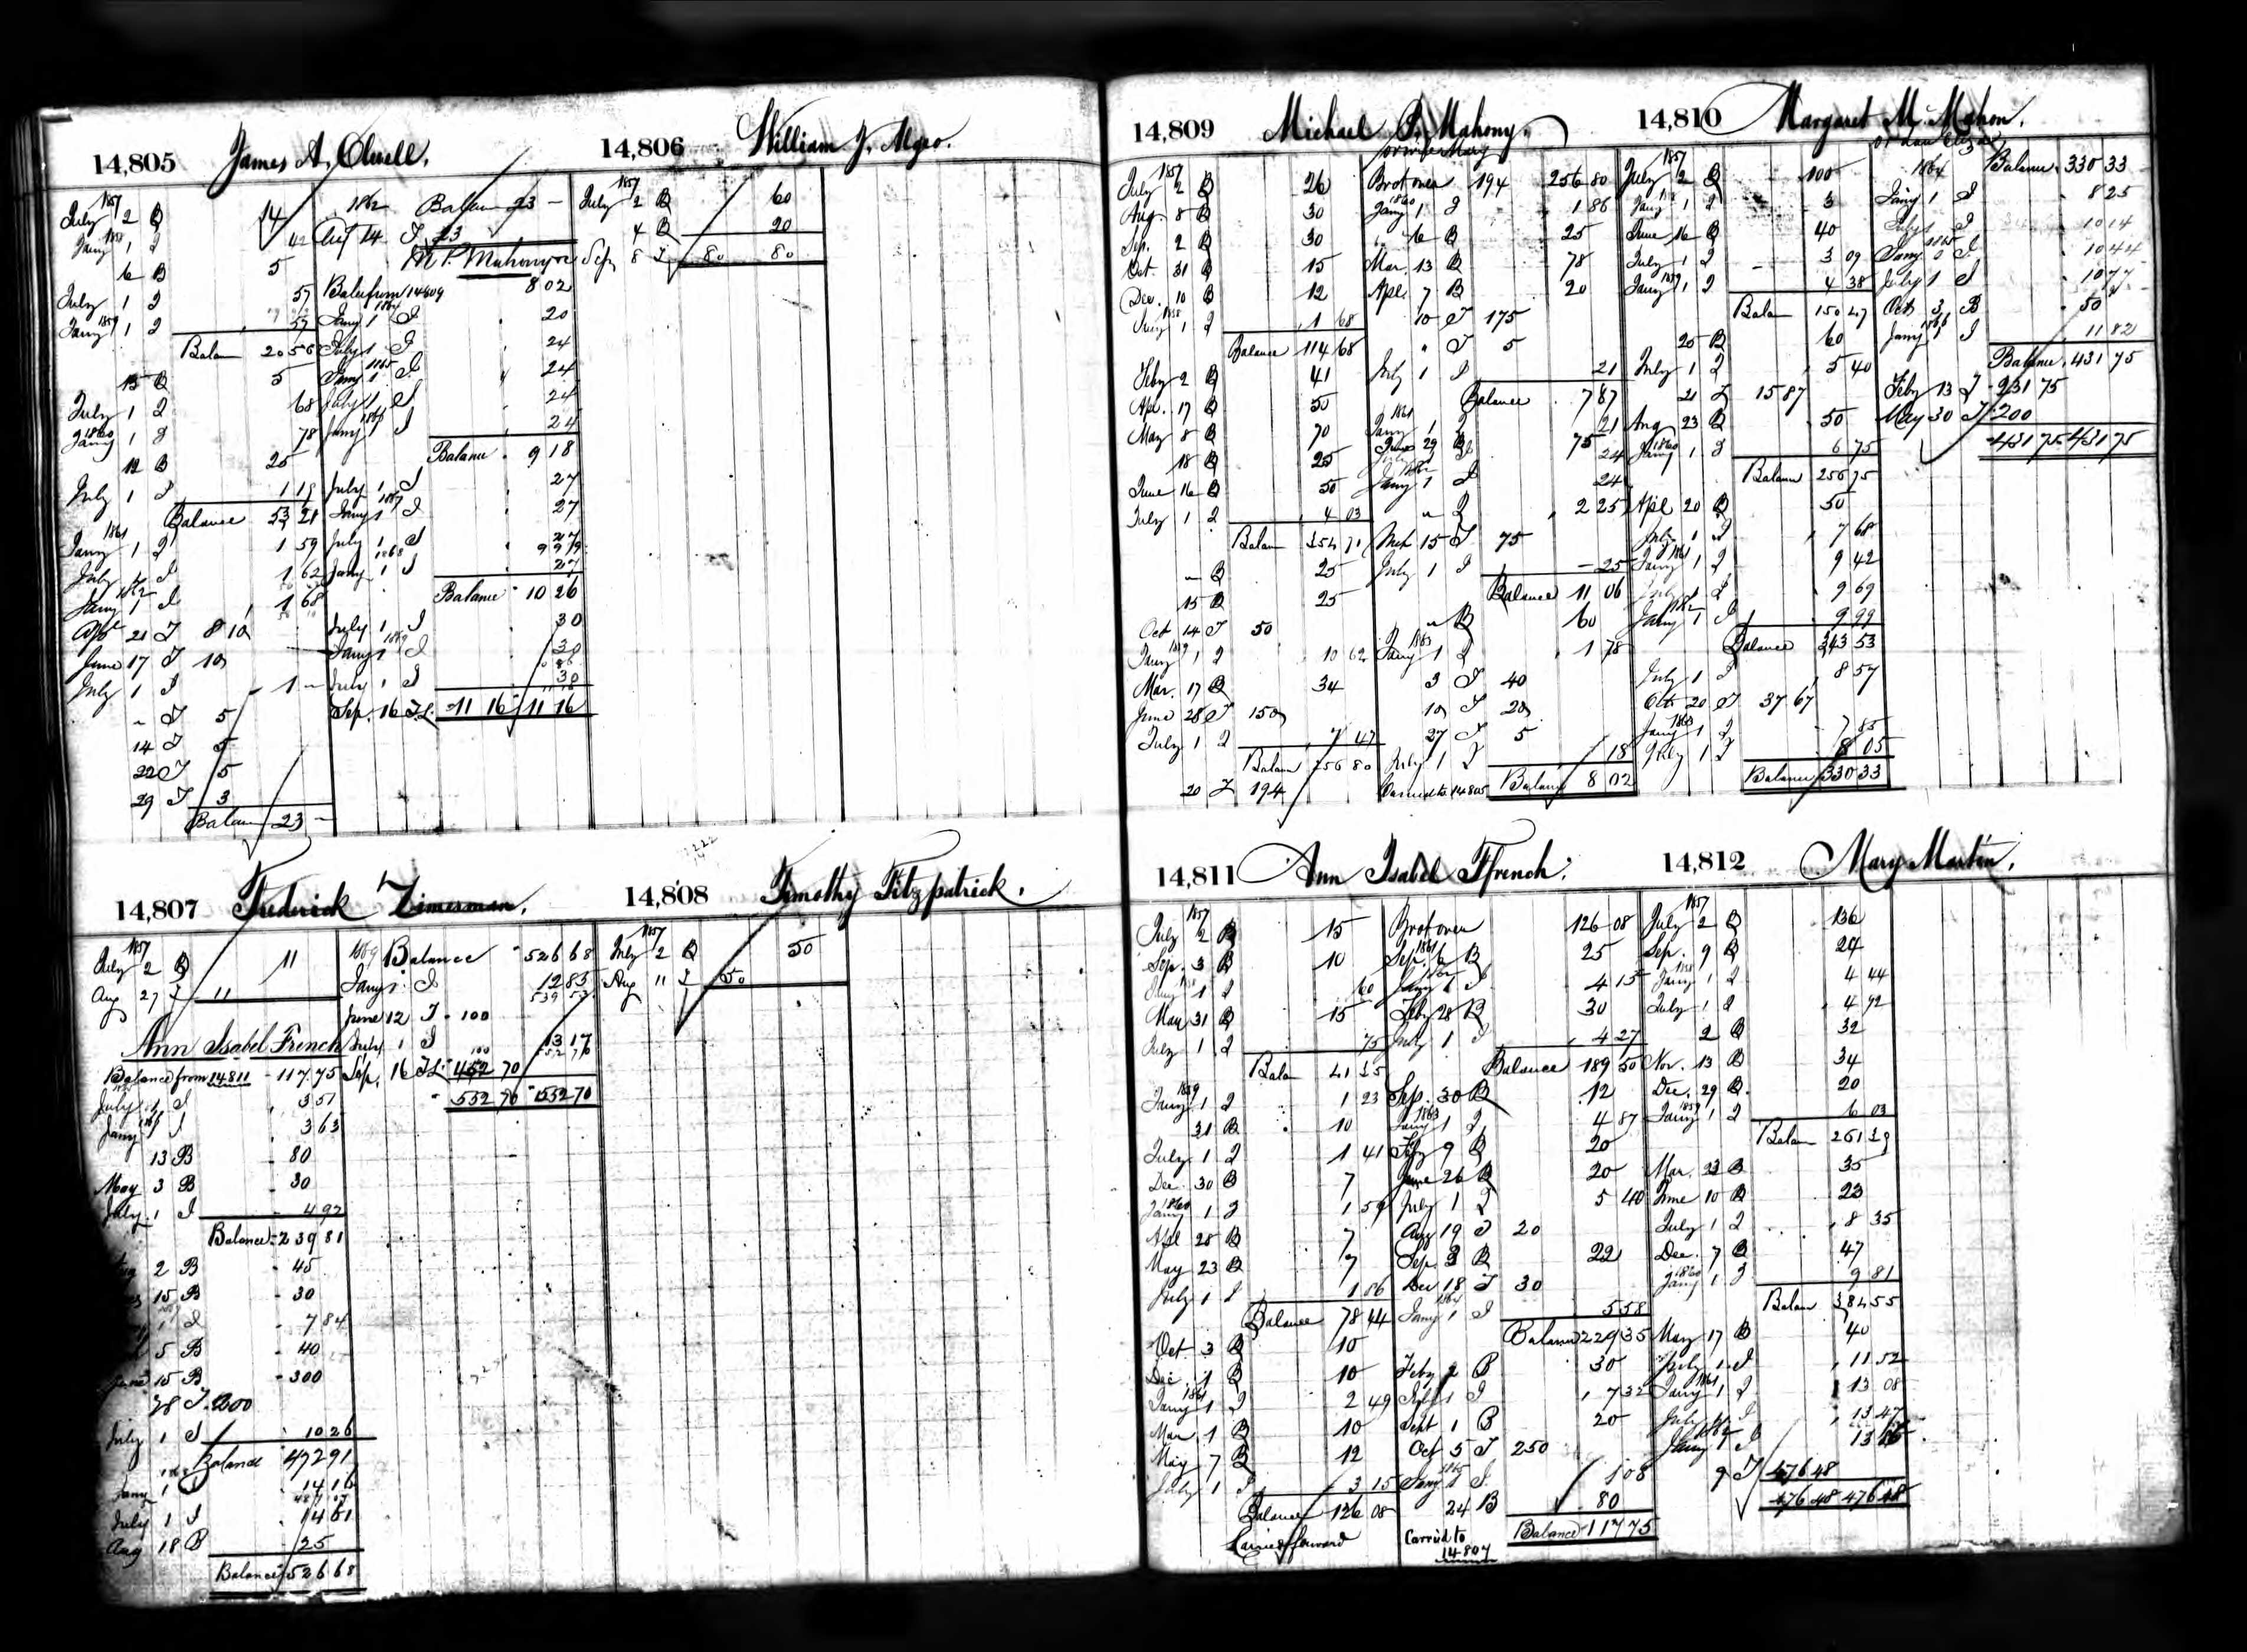 14,805 James A. Olwell.
1857
July 2 B 14
1858
Jany 1 I 42
6 B 5
July 1 I 57
1859
Jany 1 I 57
Balan 20 56
15 B 5
July 1 I 68
1860
Jany 1 I 78
12 B 25
July 1 I 1 19
Balance 53 21
1861
Jany 1 I 1 59
July 1 I 1 62
1862
Jany 1 I 1 68
Apl 21 I 8 10
June 17 I 10
July 1 I 1 –
" I 5
14 I 5
22 I 5
29 I 3
Balan 23 –
1862 Balan 23 –
14 I 23
M. P. Mahony
Bale from 14809 8 02
1864
Jany 1 I 20
July 1 I 24
1865
Jany 1 I 24
July 1 I 24
1866
Jany 1 I 24
Balance 9 18
July 1 I 27
1867
Jany 1 I 27
July 1 I 27
1868
Jany 1 I 27
Balance 10 26
July 1 I 30
1869
Jany 1 I 30
July 1 I 30
Sep. 16 I.L. 11 16 11 16
14,806 William J. Algeo.
1857
July 2 B 60
4 B 20
Sep 8 I 80 80
14,807 Frederick Zimerman.
1857
July 2 B 11
Aug 27 I 11
Ann Isabel French
Balance from 14811 117.75
July 1 I 3 51
Jany 1 I 3 63
13 B 80
May 3 B 30
July 1 I 4 92
Balance 239 81
2 B 45
15 B 30
1 I 7 84
5 B 40
June 15 B 300
28 I 200
July 1 I 10 26
Balance 472 91
Jany 1 I 14 16
July 1 I 14 61
Aug 18 B 25
Balance 526 68
1869 Balance 526 68
Jany 1 I 12 85
539 53
June 12 I 100
July 1 I 13 17
Sep. 16 I.L. 452 70
552 70 552 70
14,808 Timothy Fitzpatrick.
1857
July 2 B 50
Aug 11 I 50
14,809 Michael P. Mahony.
or wife Mary
1857
July 2 B 26
Aug. 8 B 30
Sep. 2 B 30
Oct. 31 B 15
Dec. 10 B 12
1858
Jany 1 I 1 68
Balance 114 68
Feby 2 B 41
Apl. 17 B 50
May 8 B 70
18 B 25
June 16 B 50
July 1 I 4 03
Balan 354 71
" B 25
15 B 25
Oct 14 I 50
1859
Jany 1 I 10 62
Mar. 17 B 34
June 28 I 150
July 1 I 7 47
Balan 256 80
20 I 194
Brot over 194 256 80
1860
Jany 1 I 1 86
" 16 B 25
Mar. 13 B 78
Apl. 7 B 20
10 I 175
" I 5
July 1 I 21
Balance 7 87
1861
Jany 1 I 21
June 29 B 75
July 1 I 24
1862
Jany 1 I 24
" I 2 25
Mch 15 I 75
July 1 I 25
Balance 11 06
" B 60
1863
Jany 1 I 1 78
3 I 40
10 I 20
27 I 5
July 1 I 18
Carried to 14805 Balance 8 02
14,810 Margaret McMahon.
1857
July 2 B 100
Jany 1 I 3
June 16 B 40
July 1 I 3 09
1859
Jany 1 I 4 38
Balan 150 47
25 B 60
July 1 I 5 40
21 I 15 87
Aug 23 B 50
1860
Jany 1 I 6 75
Balance 256 75
Apl 20 B 50
July 1 I 7 68
1861
Jany 1 I 9 42
July 1 I 9 69
1862
Jany 1 I 9 99
Balance 343 53
July 1 I 8 57
Oct 20 I 37 67
1863
Jany 1 I 7 85
July 1 I 8 05
Balance 330 33
1864 Balance 330 33
Jany 1 I 8 25
July 1 I 10 14
1865
Jany 1 I 10 44
July 1 I 10 77
Oct 3 B 50
1866
Jany 1 I 11 82
Balance 431 75
Feby 13 I 231 75
May 30 I 200
431 75 431 75
14,811 Ann Isabel Ffrench.
1857
July 2 B 15
Sep. 3 B 10
1858
Jany 1 I 60
May 31 B 15
July 1 I 75
Bala 41 35
1859
Jany 1 I 1 23
31 B 10
July 1 I 1 41
Dec. 30 B 7
1860
Jany 1 I 1 59
Apl 25 B 7
May 23 B 7
July 1 I 1 86
Balance 78 44
Oct. 3 B 10
Dec. 1 B 10
1861
Jany 1 I 2 49
Mar. 1 B 10
May 7 B 12
July 1 I 3 15
Balance 126 08
Carried forward
Brot over 126 08
1861
Sep. 6 B 25
1862
Jany 1 I 4 15
Feby 28 B 30
July 1 I 4 27
Balance 189 50
Sep. 30 B 12
1863
Jany 1 I 4 87
Feby 9 B 20
June 26 B 20
July 1 I 5 40
Aug 19 I 20
Sep. 3 B 22
Dec 18 I 30
1864
Jany 1 I 5 58
Balance 229 35
Feby 2 B 30
July 1 I 7 32
Sept 1 B 20
Oct 5 I 250
1865
Jany 1 I 1 08
24 B 80
Carried to 14807 Balance 117 75
14,812 Mary Martin.
1857
July 2 B 136
Sep. 9 B 24
1858
Jany 1 I 4 44
July 1 I 4 92
2 B 32
Nov. 13 B 34
Dec. 29 B 20
1859
Jany 1 I 6 03
Balan 261 39
Mar. 23 B 35
June 10 B 23
July 1 I 8 35
Dec. 7 B 47
1860
Jany 1 I 9 81
Balan 384 55
May 17 B 40
July 1 I 11 52
1861
Jany 1 I 13 08
July 1 I 13 47
1862
Jany 1 I 13 86
9 I 476 48
476 48 476 48